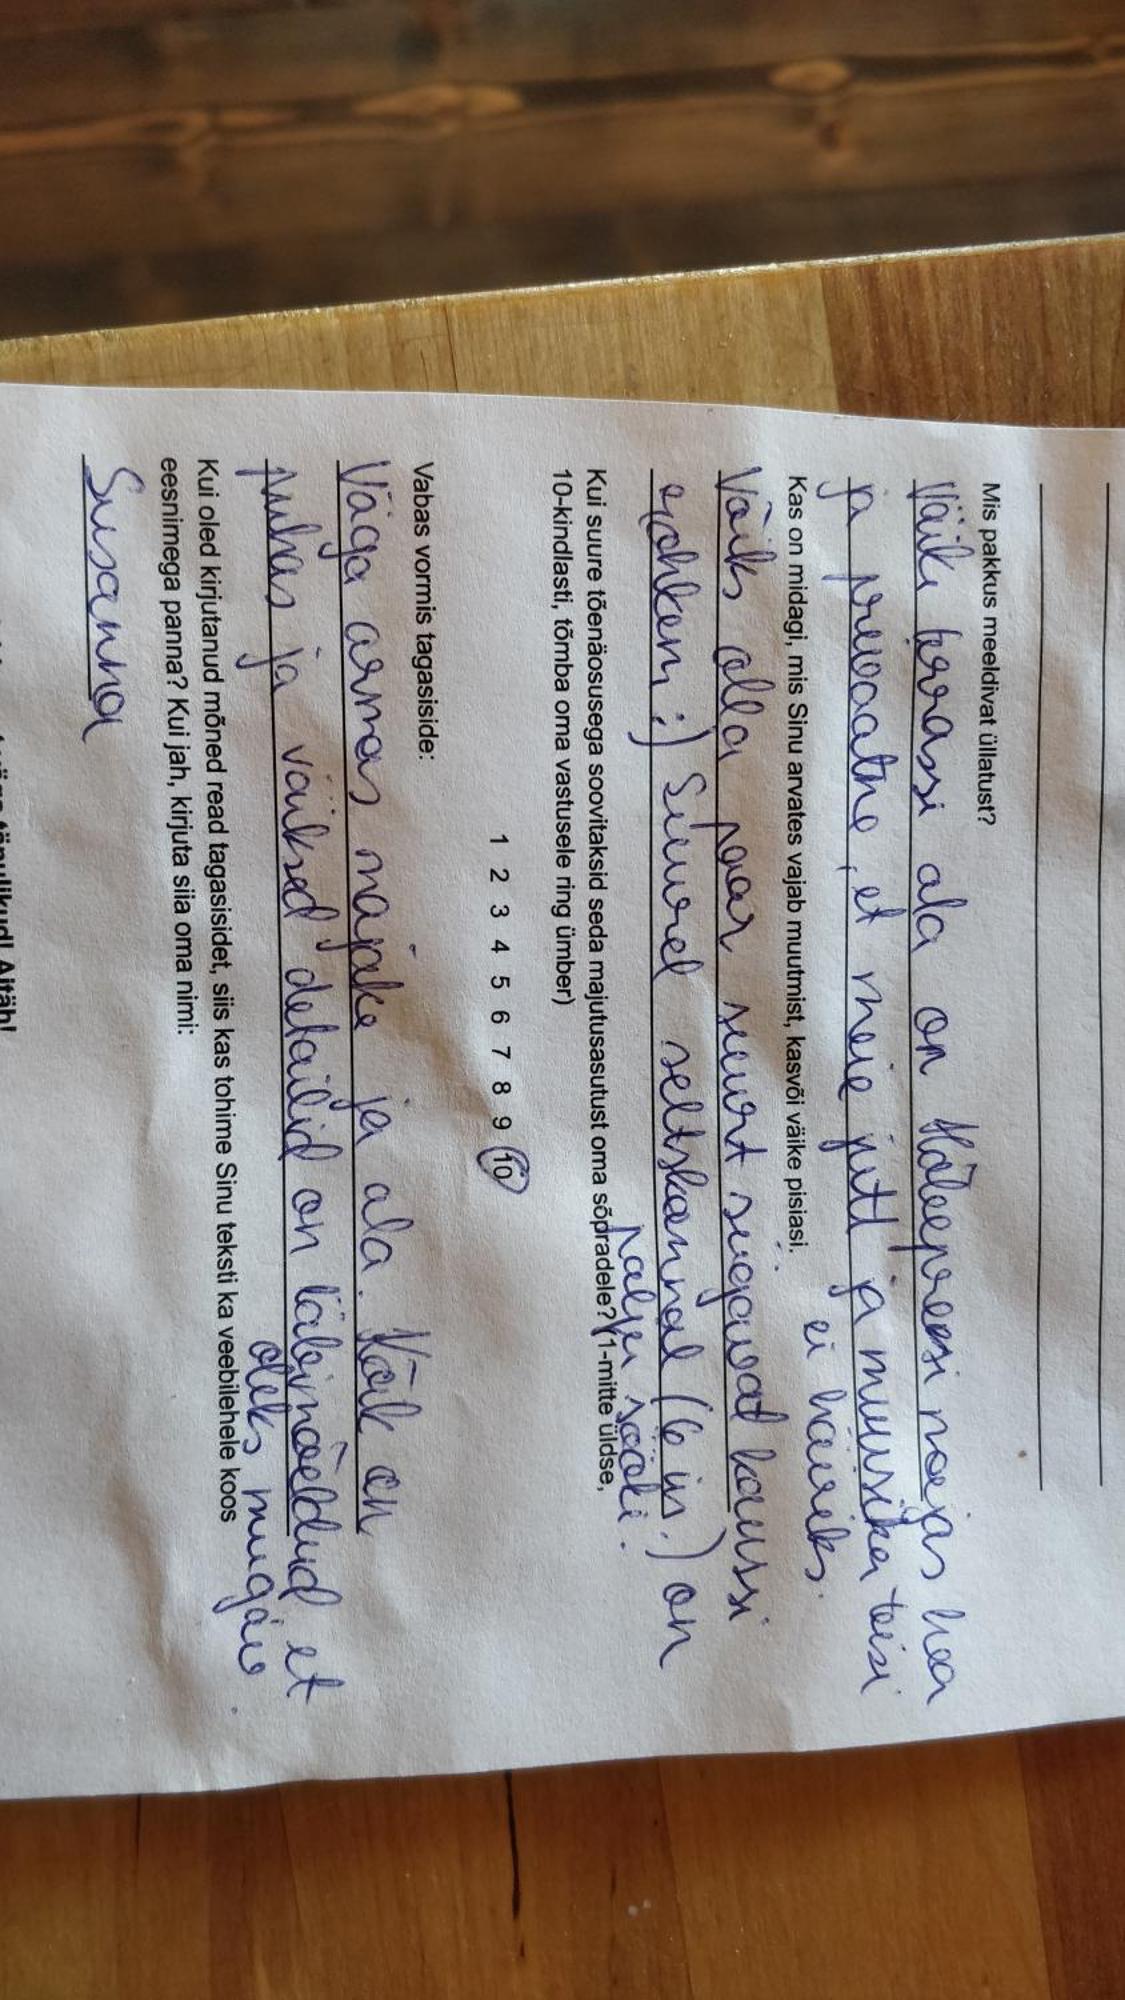 Mis pakkus meeldivat üllatust?
Väike terrassi ala on hea
ja privaatne, et meie jutt ja muusika teisi
ei häiriks.
Kas on midagi, mis Sinu arvates vajab muutmist, kasvõi väike pisiasi.
Võiks olla paar suurt sügavat kaussi
rohkem :) Suurel seltskonnal (6 in.) on
palju sööki.
Kui suure tõenäosusega soovitaksid seda majutusasutust oma sõpradele? (1-mitte üldse,
10-kindlasti, tõmba oma vastusele ring ümber)
1 2 3 4 5 6 7 8 9 10
Vabas vormis tagasiside:
Väga armas majake ja ala. Kõik on
puhas ja väiksed detailid on läbimõeldud, et
oleks mugav.
Kui oled kirjutanud mõned read tagasisidet, siis kas tohime Sinu teksti ka veebilehele koos
eesnimega panna? Kui jah, kirjuta siia oma nimi:
Susanna
tänulikud! Aitäh!